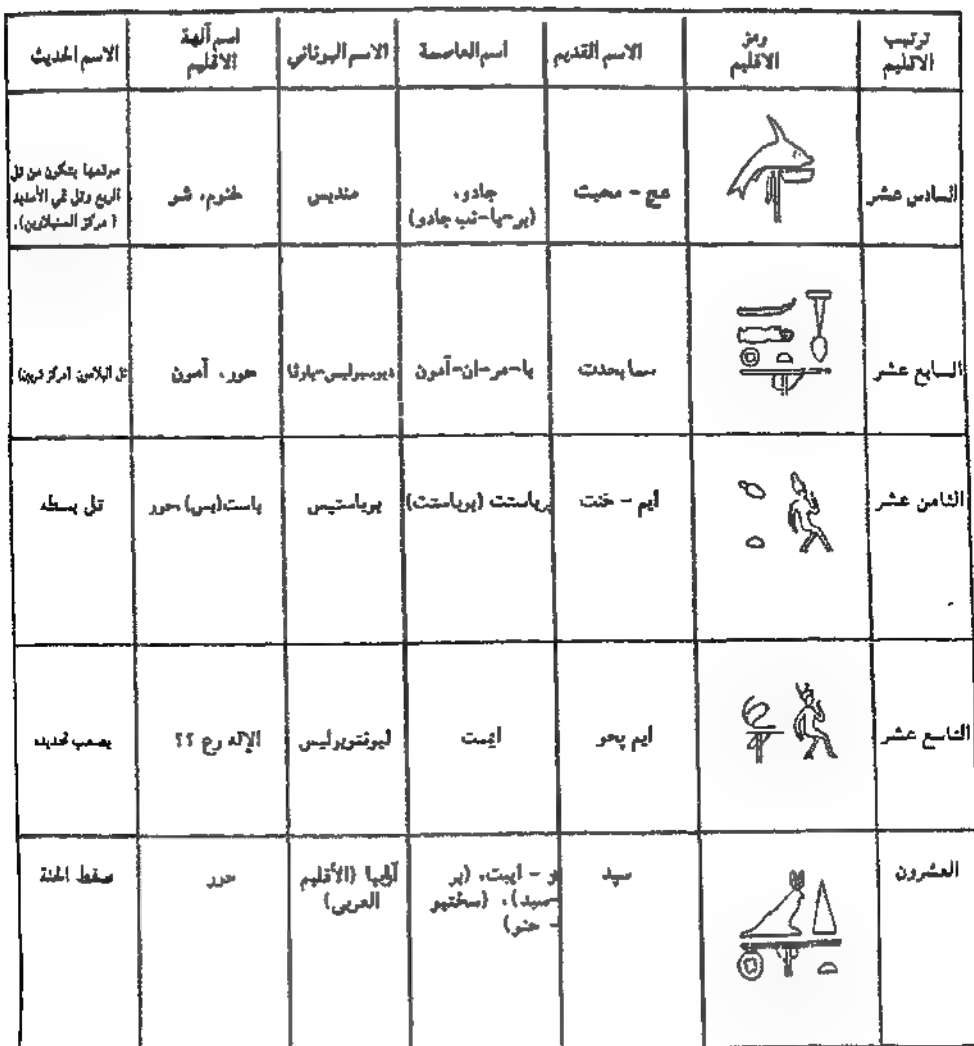 ترتيب الاقليم	رمز الاقليم	الاسم القديم	اسم العاصمة	الاسم اليوناني	اسم آلهة الاقليم	الاسم الحديث
السادس عشر	عج - محيت	جادو، (بر-يا-نب جادو)	منديس	خنوم، شو	موقعها يتكون من تل الربع وتل تمي الأمديد (مركز السنبلاوين).
السابع عشر	سما بحدت	يا-مر-ان-آمون	ديوسبوليس-بارفا	حور، آمون	تل البلامون (مركز شربين)
الثامن عشر	ايم - خنت	برباستت (بوباستت)	بوباستيس	باست (بس) حور	تل بسطه
التاسع عشر	ايم پحو	ايمت	ليونتوبوليس	الإله رع ؟؟	يصعب تحديده
العشرون	سپد	- ايبت، (بر -سبد)، (سختيو - حنو)	(الأقليم العربي)	حور	صفط الحنة